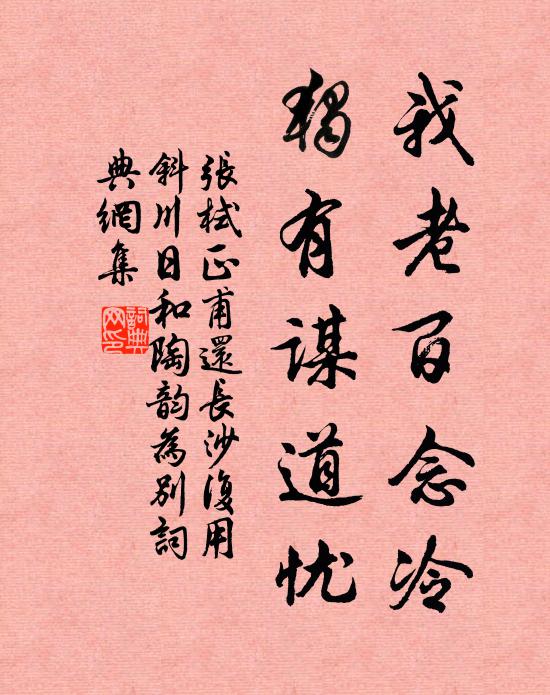 我老百念冷
獨有謀道忧
張栻正甫還長沙復用
斜川日和陶韵為別詞
典網集
詞典網印